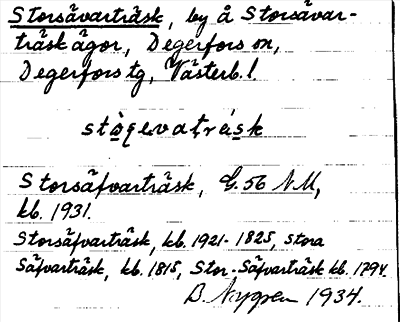 Storsävarträsk, by å Storsävar-
träsk ägor, Degerfors sn,
Degerfors tg, Västerb. l.
Storsäfvarträsk, G. 56 NM,
kb. 1931.
Storsäfvarträsk, kb. 1921-1825, Stora
Säfvarträsk, kb. 1815, Stor-Säfvarträsk kb. 1794.
B. Nygren 1934.